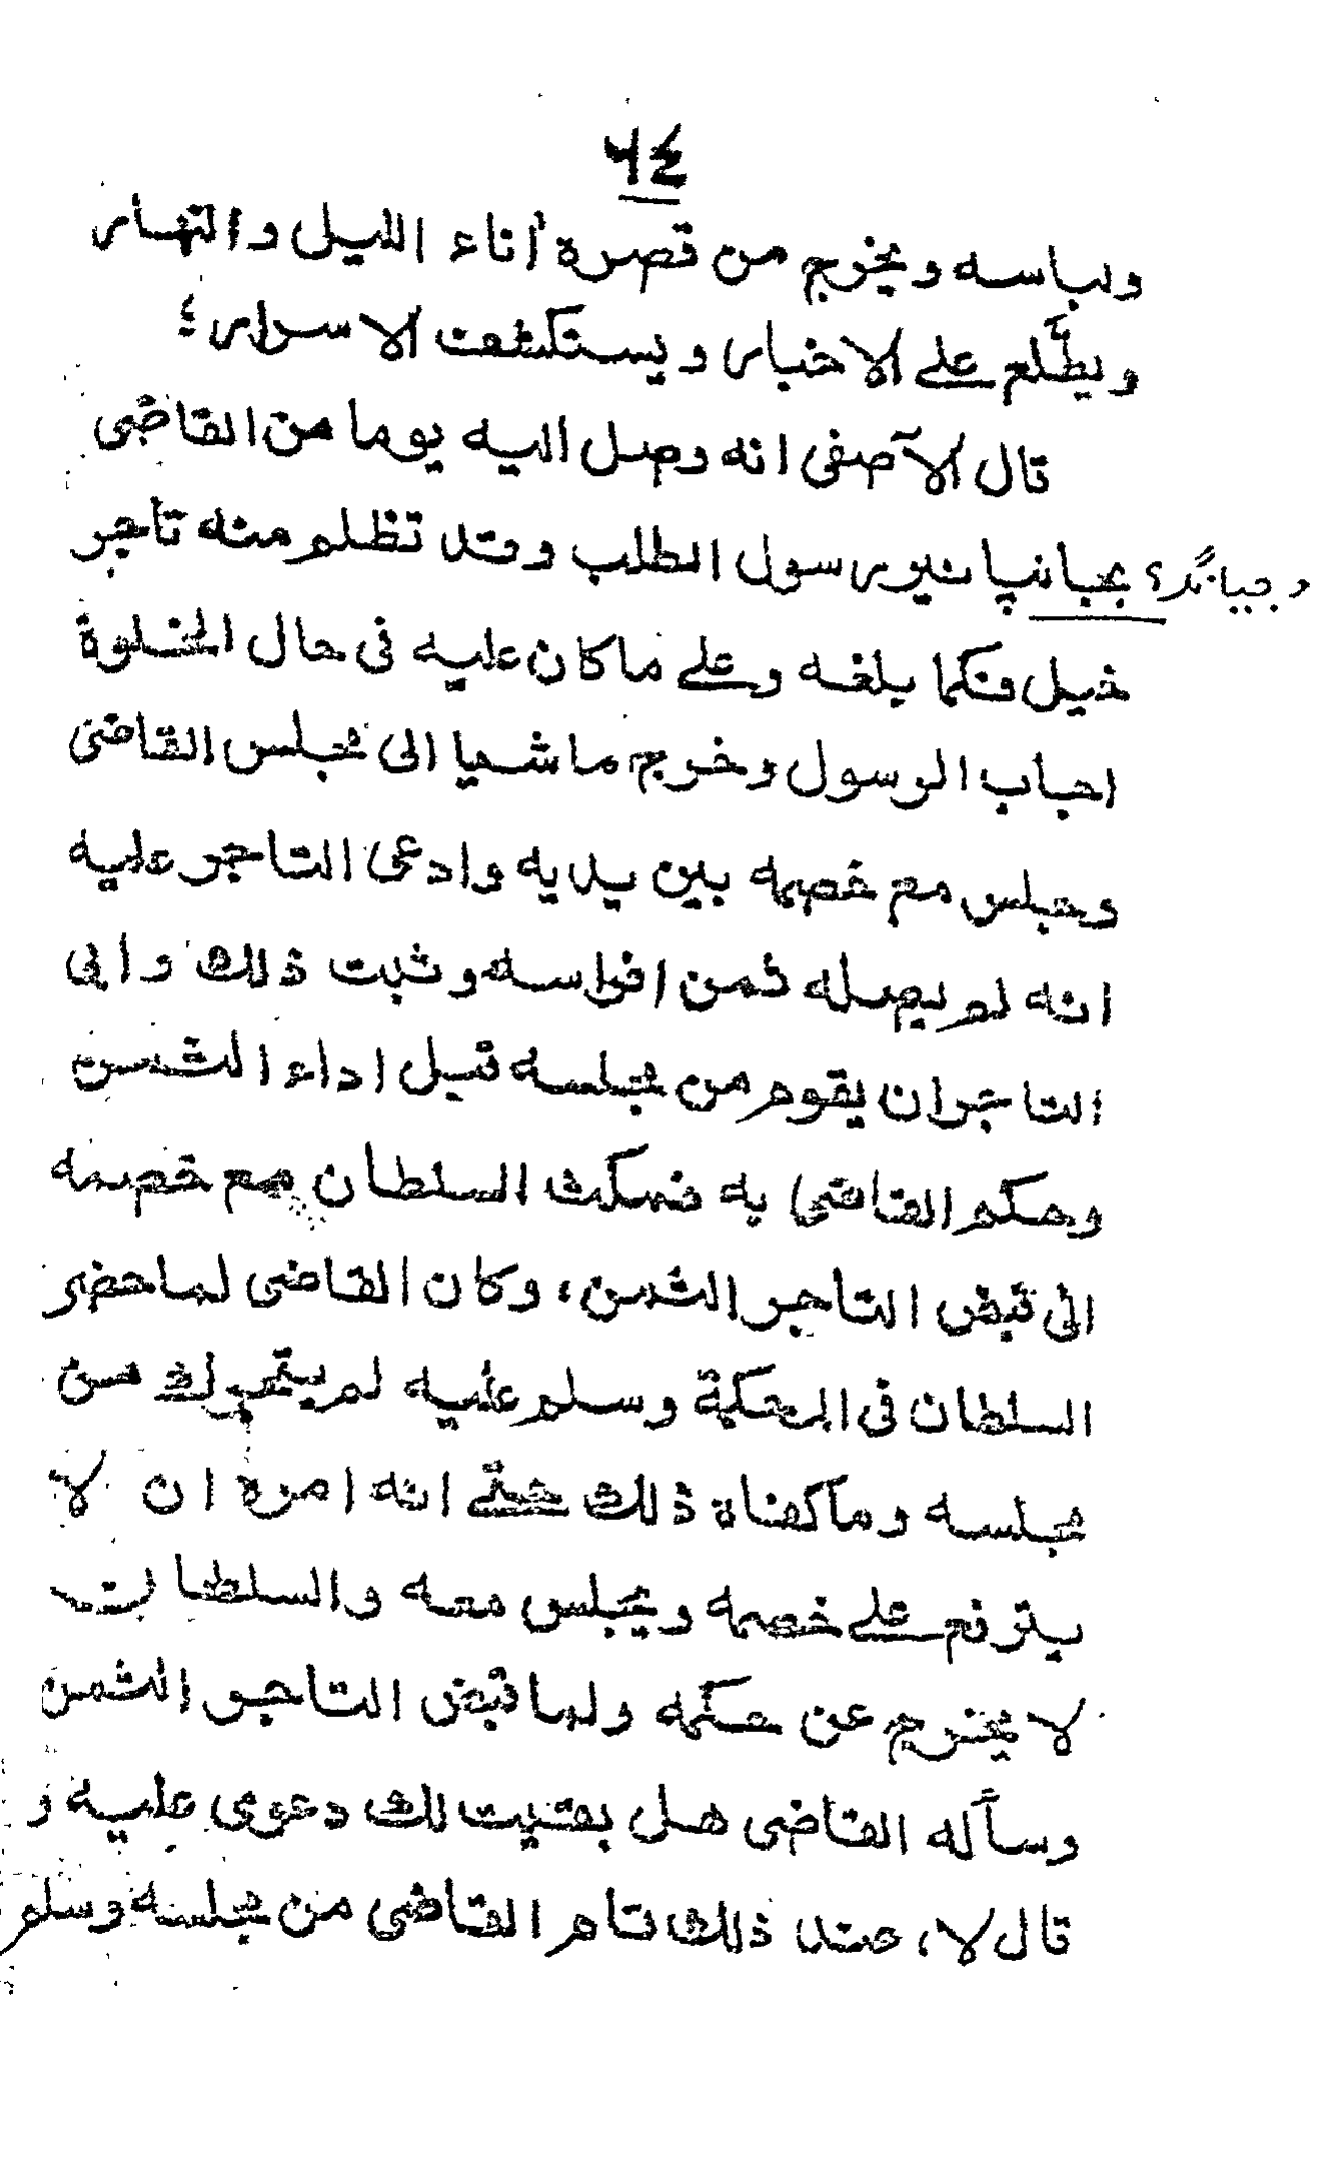 ٦٤
ولباسه ويخرج من قصره أناء الليل والنهار
ويطّلع على الاخبار ويستكشف الاسرار؛
قال الآصفى انه وصل اليه يوما من القاضى
بجاپانير رسول الطلب وقد تظلم منه تاجر
خيل فكما بلغه وعلى ما كان عليه فى حال الخلوة
اجاب الرسول وخرج ماشيا الى مجلس القاضى
وجلس مع خصمه بين يديه وادعى التاجر عليه
انه لم يصله ثمن افراسه وثبت ذلك وابى
التاجر ان يقوم من مجلسه قبل اداء الثمن
وحكم القاضى به فمكث السلطان مع خصمه
الى قبض التاجر الثمن، وكان القاضى لما حضر
السلطان فى المحكمة وسلم عليه لم يتحرك من
مجلسه وما كفاه ذلك حتى انه امره ان لا
يترفع على خصمه ويجلس معه والسلطان
لا يخرج عن حكمه ولما قبض التاجر الثمن
وسأله القاضى هل بقيت لك دعوى عليه و
قال لا، عند ذلك قام القاضى من مجلسه وسلم